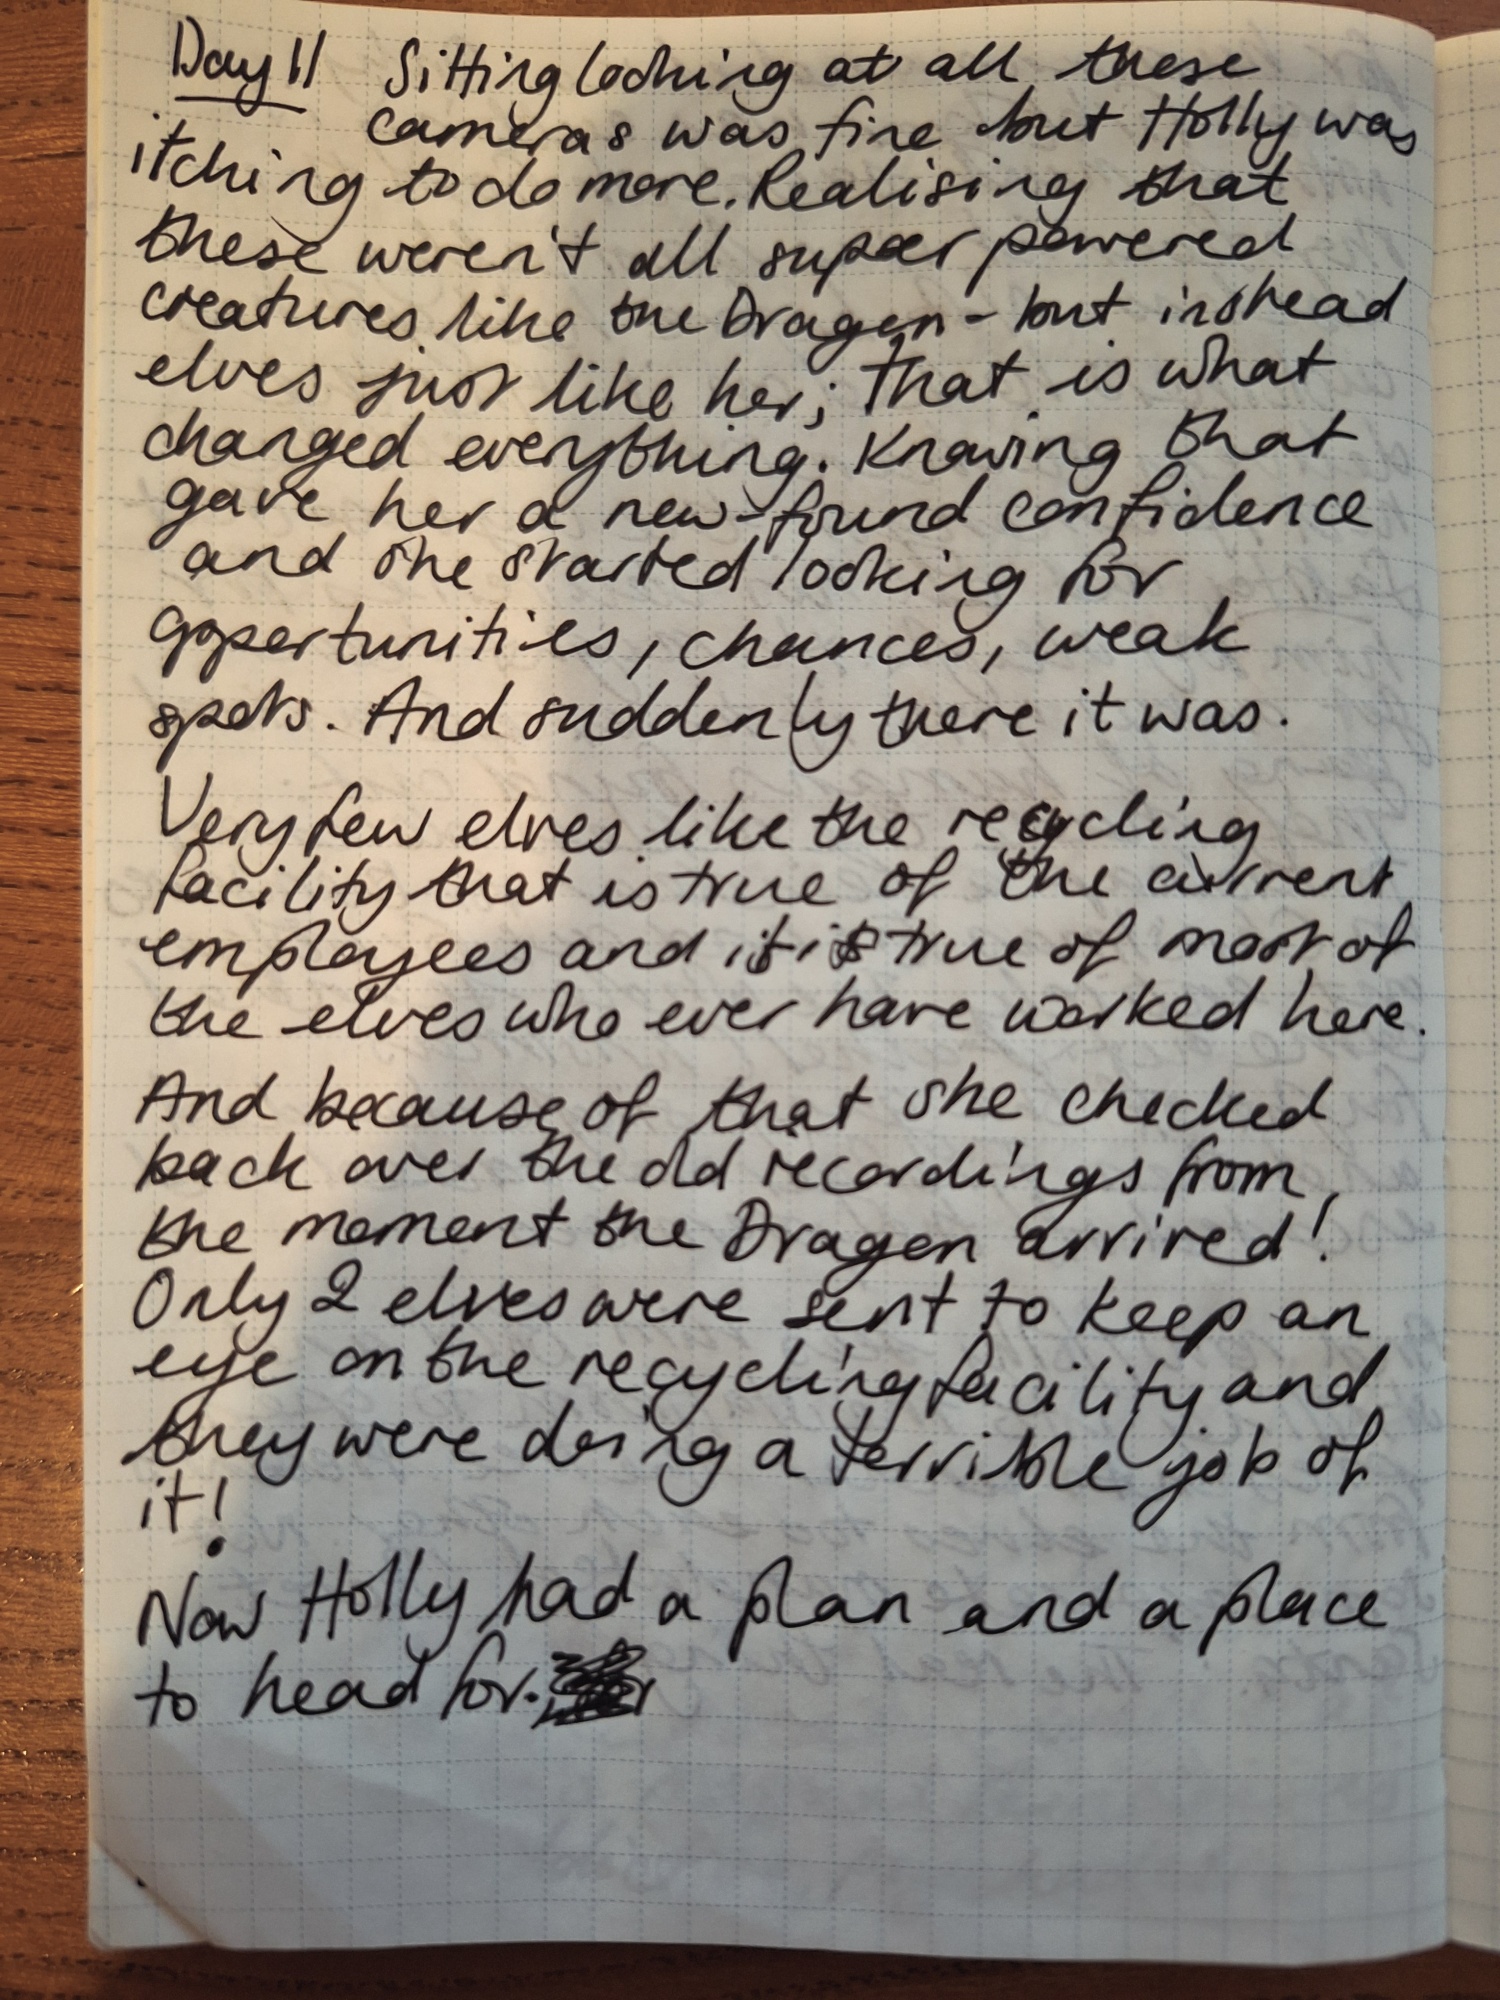 Day 11 Sitting looking at all these
cameras was fine but Holly was
itching to do more. Realising that
these weren't all super powered
creatures like the Dragon - but instead
elves just like her; that is what
changed everything. Knowing that
gave her a new-found confidence
and she started looking for
opportunities, chances, weak
spots. And suddenly there it was.
Very few elves like the recycling
facility that is true of the current
employees and it is true of most of
the elves who ever have worked here.
And because of that she checked
back over the old recordings from,
the moment the Dragon arrived!
Only 2 elves were sent to keep an
eye on the recycling facility and
they were doing a terrible job of
it!
Now Holly had a plan and a place
to head for.